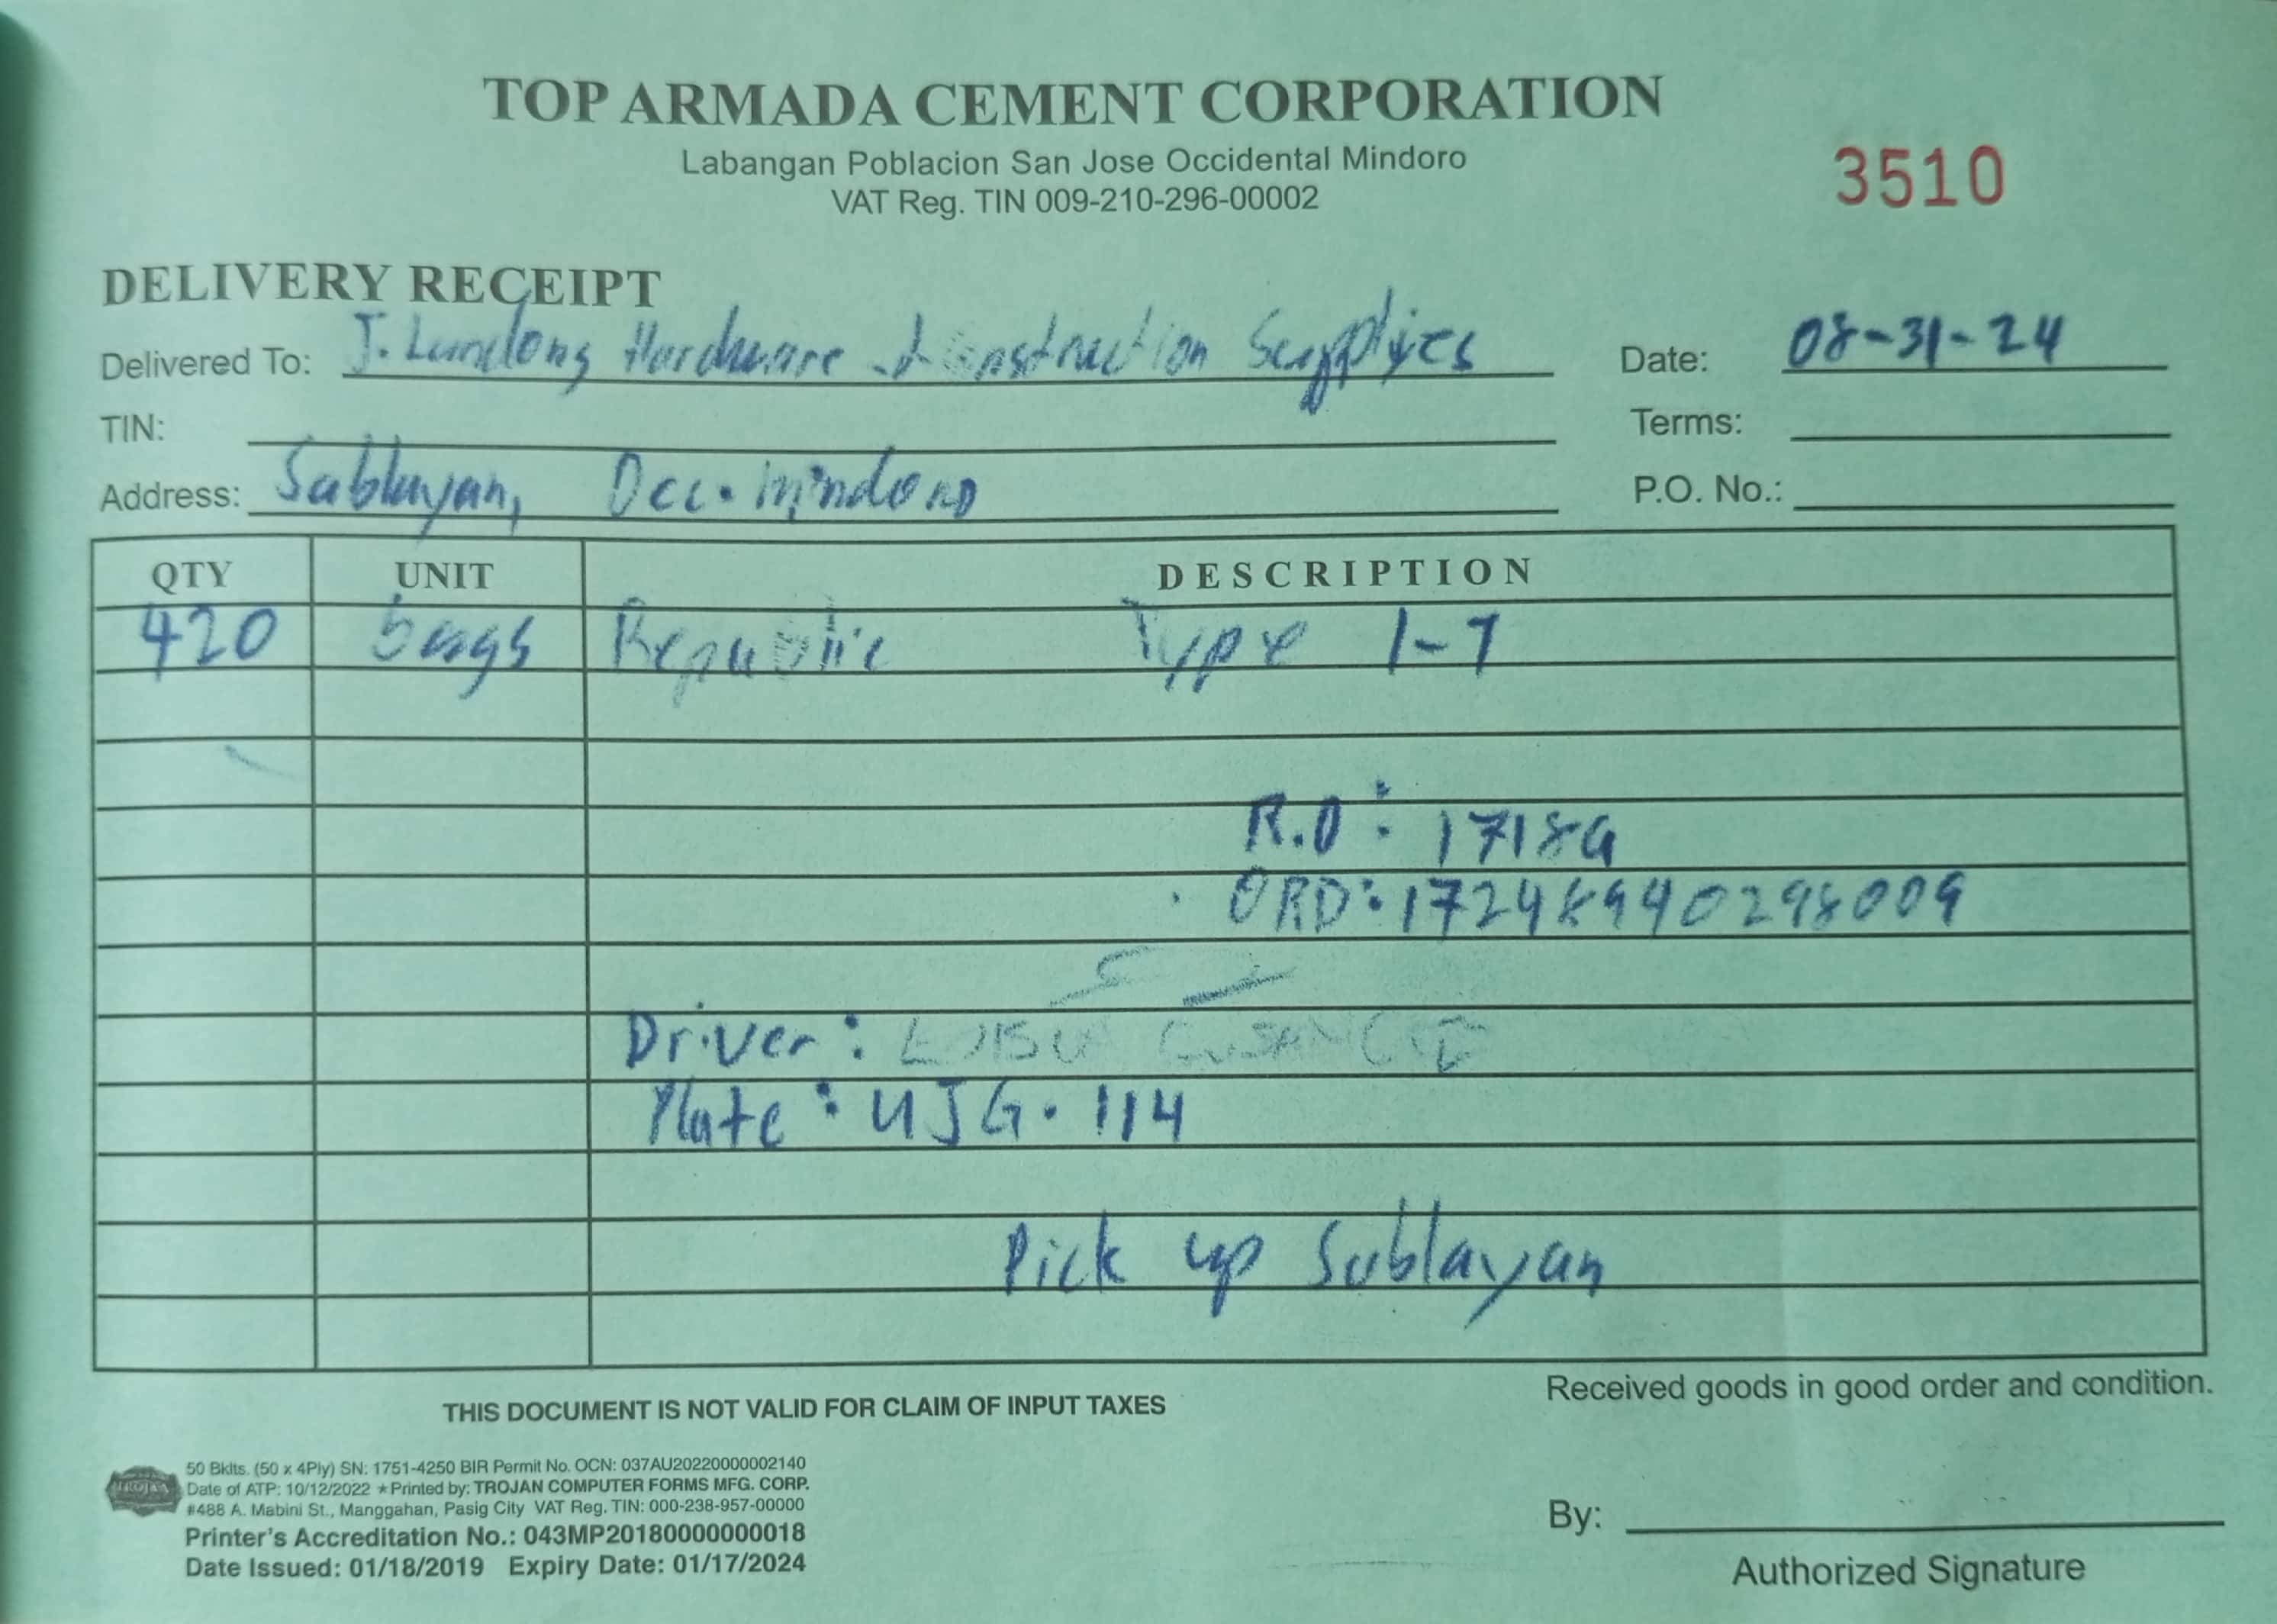 TOP ARMADA CEMENT CORPORATION
Labangan Poblacion San Jose Occidental Mindoro
VAT Reg. TIN 009-210-296-00002
3510
DELIVERY RECEIPT
Delivered To: J. Lumdong Hardware & Construction Supplies
Date: 08-31-24
TIN:
Terms:
Address: Sablayan, Occ. Mindoro
P.O. No.:
QTY UNIT DESCRIPTION
420 bags Republic Type 1-T
R.O: 17189
ORD: 17248940298009
Driver:
Plate: UJG. 114
Pick up Sablayan
THIS DOCUMENT IS NOT VALID FOR CLAIM OF INPUT TAXES
Received goods in good order and condition.
TROJAN
50 Bklts. (50 x 4Ply) SN: 1751-4250 BIR Permit No. OCN: 037AU20220000002140
Date of ATP: 10/12/2022 ★ Printed by: TROJAN COMPUTER FORMS MFG. CORP.
#488 A. Mabini St., Manggahan, Pasig City VAT Reg. TIN: 000-238-957-00000
Printer's Accreditation No.: 043MP20180000000018
Date Issued: 01/18/2019 Expiry Date: 01/17/2024
By:
Authorized Signature